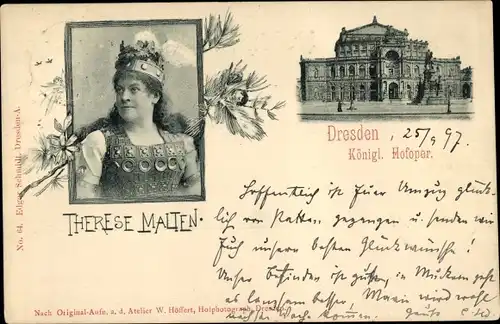 THERESE MALTEN.
Dresden, 25/9 97.
Königl. Hofoper.
Hoffentlich ist Euer Umzug glück-
lich von Statten gegangen u. senden wir
Euch unsern besten Glückwünsche!
Unser Befinden ist gut, in Muskau geht
es langsam besser, Marie wird wohl
nächste Woche kommen.
No. 64. Edgar Schmidt, Dresden-A.
Nach Original-Aufn. a. d. Atelier W. Höffert, Hofphotograph, Dresden.